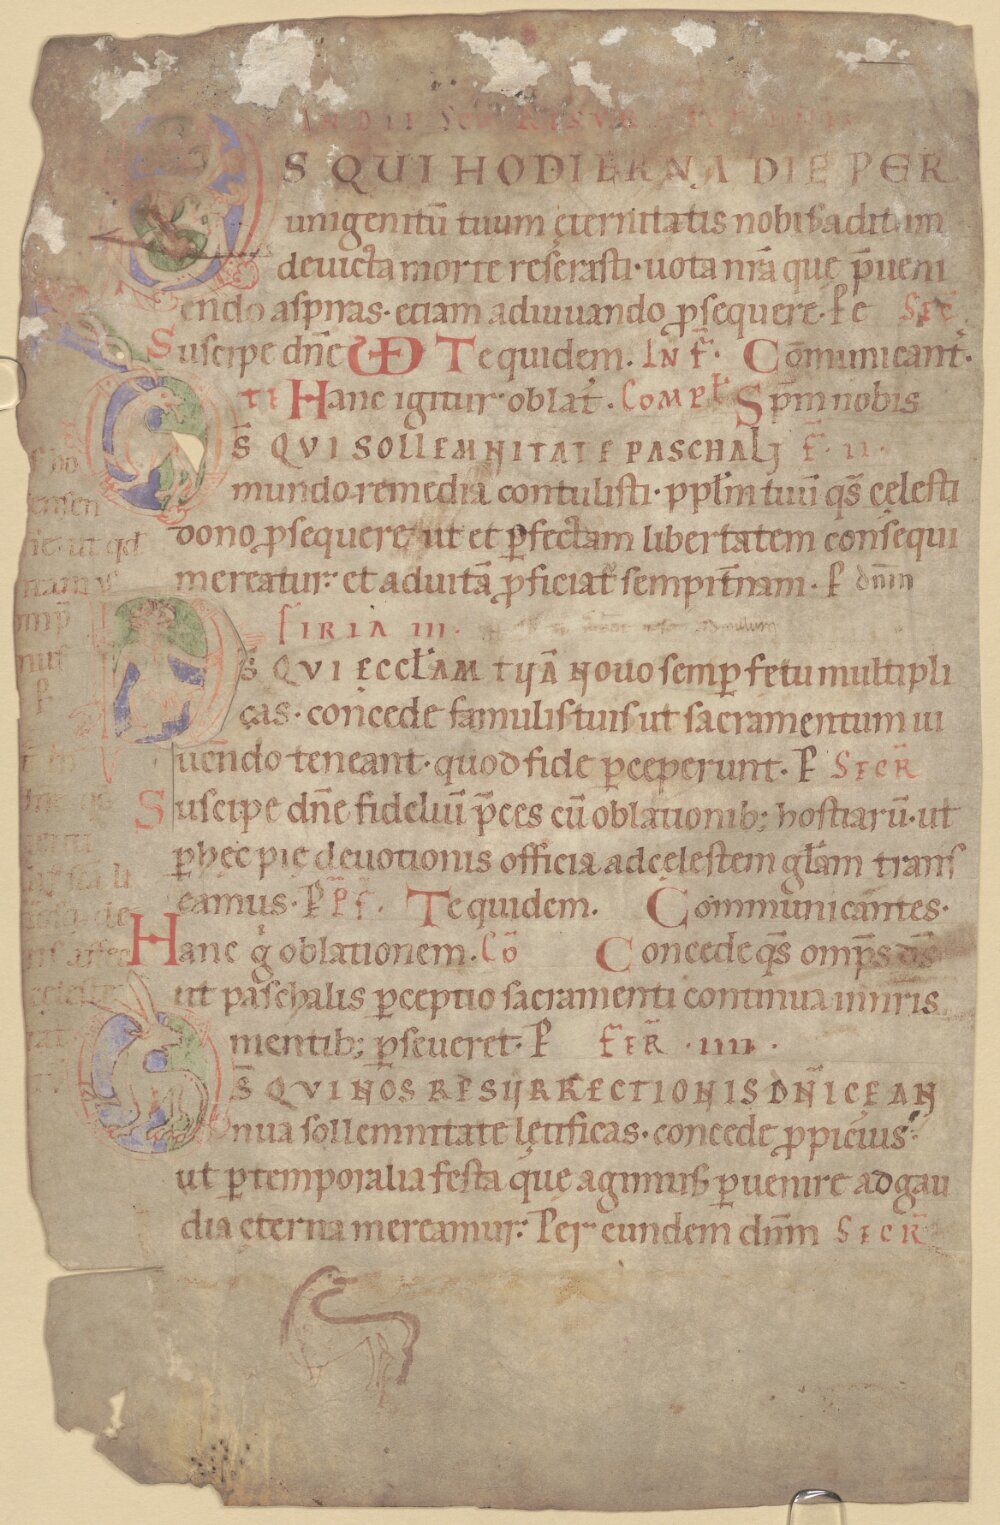 IN DIE SCO RESURRECTIONIS
DS QUI HODIERNA DIE PER
unigenitū tuum ęternitatis nobis aditum
devicta morte reserasti· uota nrā que p̄ueni
endo aspiras· etiam adiuuando ꝓsequere· P̲ e SEC̄
Suscipe dn̄e VD Te quidem. IN F̄· Com̄unicant·
TES Hanc igitur oblat̄. COMPL̄ Sp̄m nobis
DS̄ QVI SOLLEMNITATE PASCHALI F̄· II·
mundo remedia contulisti· ppl̄m tuū qs̄ cęlesti
dono ꝓsequere ut et ꝑfectam libertatem consequi
mereatur· et ad uitā ꝓficiat sempit̄nam· P̲ dnm̄
FIRIA III·
DS̄ QVI ECCL̄AM TUĀ NOuo semꝑ fetu multipli
cas· concede famulis tuis ut sacramentum ui
uendo teneant· quod fide ꝑceperunt· P̲ SECR̄
Suscipe dn̄e fideliū p̄ces cū oblationib; hostiarū· ut
ꝑ hęc pię deuotionis officia ad cęlestem gl̄am trans
eamus· P̲ P̄F̄. Te quidem. Communicantes·
Hanc g̊ oblationem. CŌ Concede qs̄ omp̄s ds̄
ut paschalis ꝑceptio sacramenti continua in nr̄is
mentib; ꝑseueret· P̲ FER̄ ·IIII·
DS̄ QVI NOS RESURRECTIONIS DN̄ICE AN
nua sollemnitate lętificas· concede ꝓpicius·
ut ꝑ temporalia festa que agimus ꝑuenire ad gau
dia eterna mereamur· Per eundem dnm̄ SECR̄